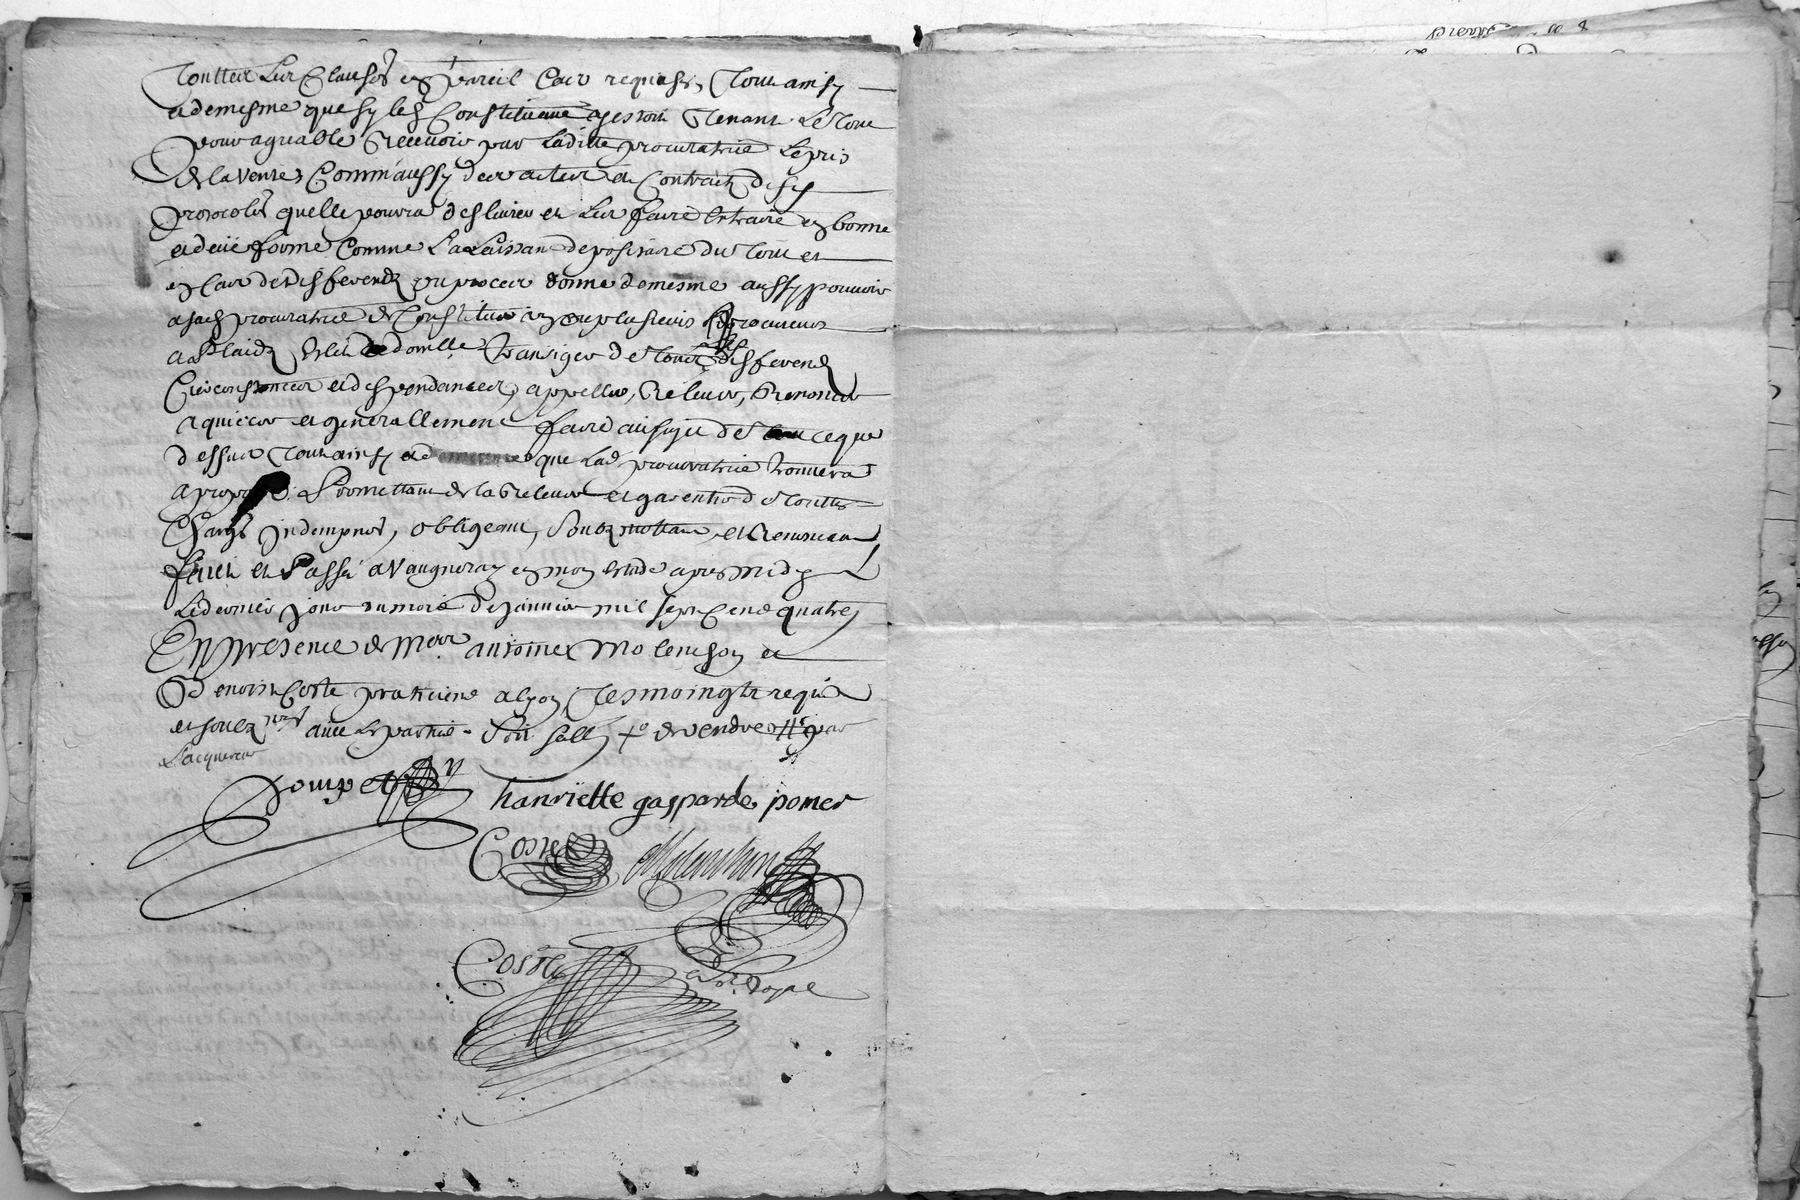 Touttes Les Clauses en pareil Cas requises, Tout ainsy
et demesme que sy les Constituans y estoit Tenant Le Tout
pour agreable Recevoir par Laditte procuratrice Le pris
de la vente, Comm'aussy des actes et Contraits desd
protocoles quelle pourra deslivrer et Les faire Extraire en bonne
et deüe forme Comme La Laissant depositaire du Tout et
en Cas de disferends ou proces donne demesme aussy pouvoir
a sad procuratrice de Constituer un ou plusieurs procureurs
a plaids Eslir domille Transiger de Touts disferends
Circonstances et despendances, appeller, Relever, Renoncer
aquiecer et generallement faire au sujet de ce que
dessus Tout ainsy que Lad procuratrice trouvera
a propos. Promettant de la Relever et garentir de Touttes
Charges Indempnes, obligeant, Soubzmettant et Renonceant
fait et Passé a Vaugneray en mon Estude apres midy
Le dernier jour du mois de Janvier mil sept Cent quatre,
En presence de Mer antoine Molenchon et
Benoist Coste praticiens a Lyon Tesmoingts requis
et soubznes avec Les parties. Soit sellé de vendre par
L'acquereur
henriëtte gasparde pomet
Coste Molenchon
Coste